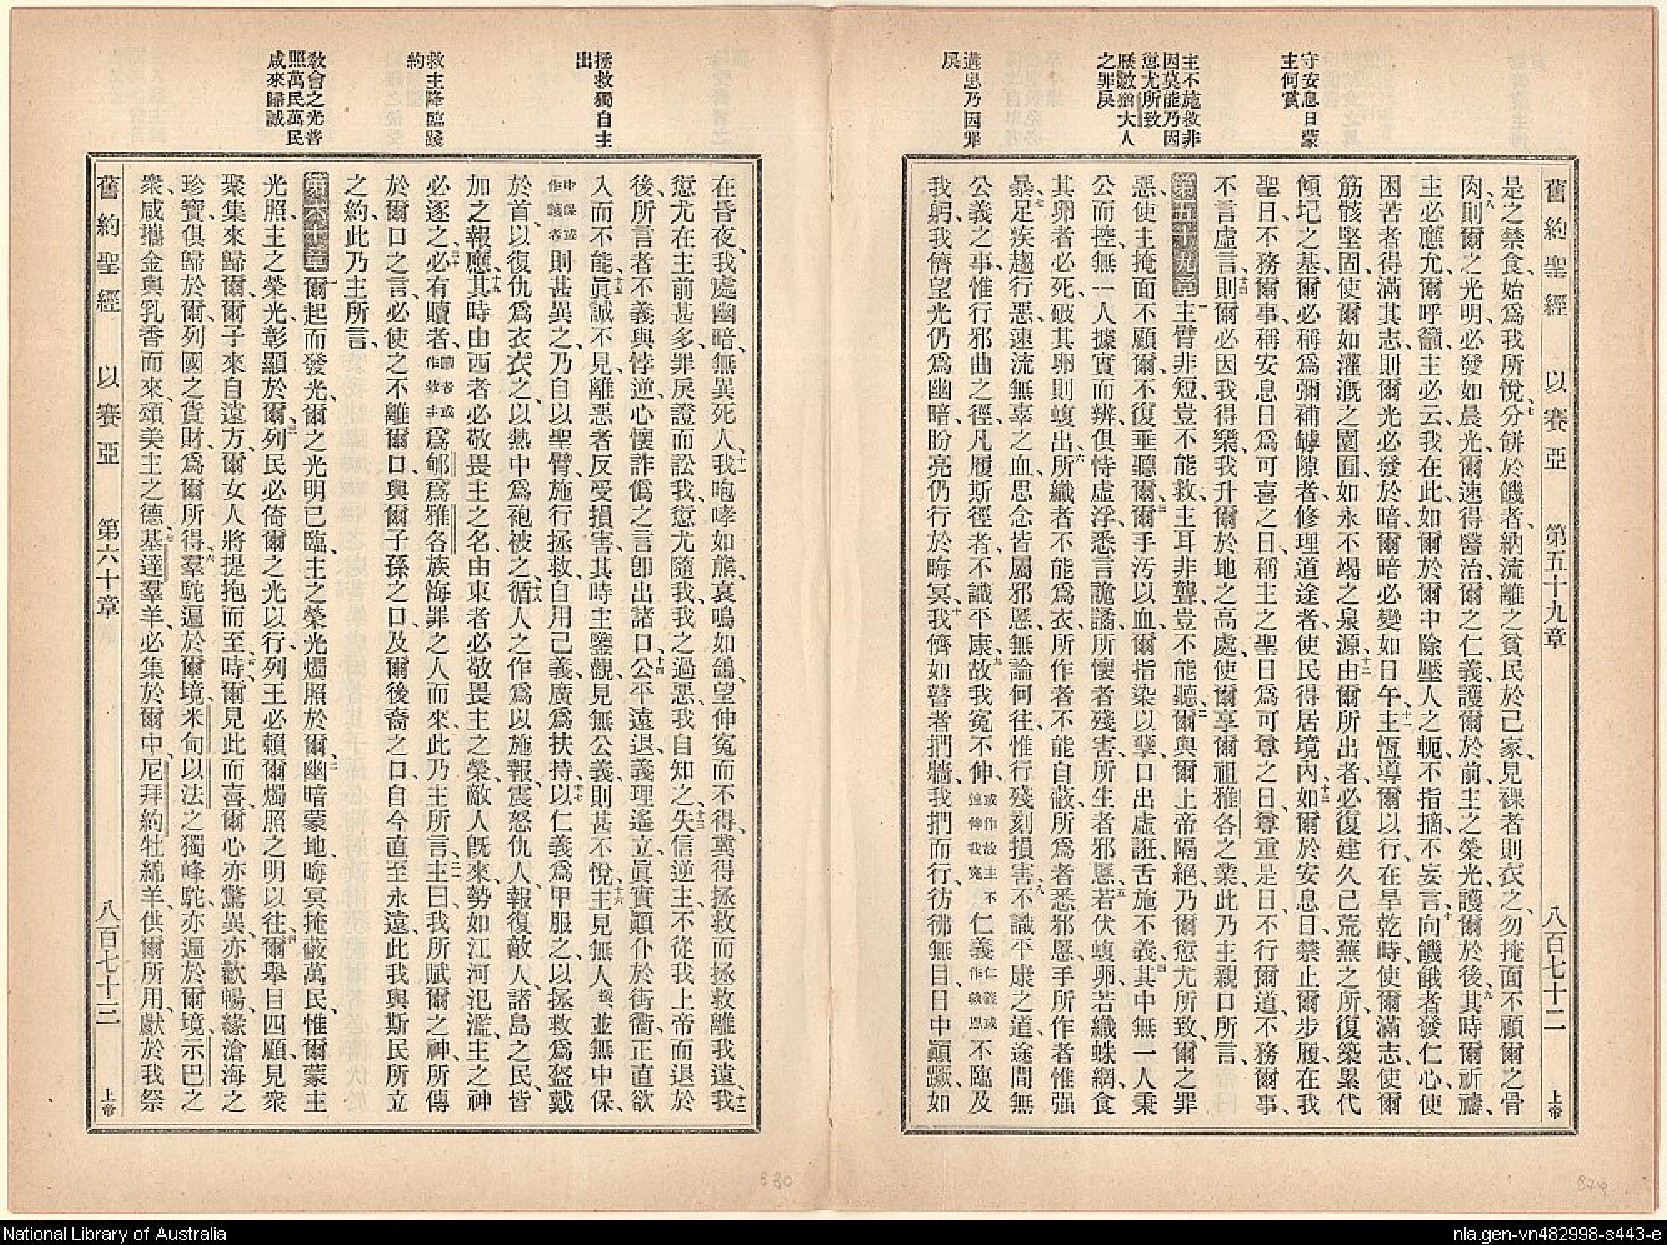 守安息日蒙
主何賞
主不施救非
因莫能乃因
愆尤所致
歷數猶大人
之罪戾
遘患乃因罪
戾
舊約聖經 以賽亞 第五十九章 八百七十二 上帝
是之禁食、始爲我所悅、七分餅於饑者、納流離之貧民於己家、見裸者則衣之、勿掩面不顧爾之骨
肉、八則爾之光明必發如晨光、爾速得醫治、爾之仁義護爾於前、主之榮光護爾於後、九其時爾祈禱、
主必應允、爾呼籲、主必云我在此、如爾於爾中除壓人之軛、不指摘、不妄言、十向饑餓者發仁心、使
困苦者得滿其志、則爾光必發於暗、爾暗必變如日午、十一主恆導爾以行、在旱乾時、使爾滿志、使爾
筋骸堅固、使爾如灌漑之園囿、如永不竭之泉源、十二由爾所出者、必復建久已荒蕪之所、復築累代
傾圮之基、爾必稱爲彌補罅隙者、修理道途者、使民得居境內、十三如爾於安息日、禁止爾步履、在我
聖日、不務爾事、稱安息日爲可喜之日、稱主之聖日爲可尊之日、尊重是日、不行爾道、不務爾事、
不言虛言、十四則爾必因我得樂、我升爾於地之高處、使爾享爾祖雅各之業、此乃主親口所言、
第五十九章 一主臂非短、豈不能救、主耳非聾、豈不能聽、二爾與爾上帝隔絕、乃爾愆尤所致、爾之罪
惡、使主掩面不顧爾、不復垂聽爾、三爾手汚以血、爾指染以孽、口出虛誑、舌施不義、四其中無一人秉
公而控、無一人據實而辨、俱恃虛浮、悉言詭譎、所懷者殘害、所生者邪慝、五若伏蝮卵、若織蛛網、食
其卵者必死、破其卵則蝮出、六所織者不能爲衣、所作者不能自蔽、所爲者悉邪慝、手所作者惟强
暴、七足疾趨行惡、速流無辜之血、思念皆屬邪慝、無論何往、惟行殘刻損害、八不識平康之道、途間無
公義之事、惟行邪曲之徑、凡履斯徑者、不識平康、九故我寃不伸、或作故主不速伸我寃仁義仁義或作救恩不臨及
我躬、我儕望光、仍爲幽暗、盼亮、仍行於晦冥、十我儕如瞽者捫牆、我捫而行、彷彿無目、日中顚蹶、如
拯救獨自主
出
救主降臨踐
約
敎會之光普
照萬民萬民
咸來歸誠
在昏夜、我處幽暗、無異死人、十一我咆哮如熊、哀鳴如鴿、望伸寃而不得、冀得拯救、而拯救離我遠、十二我
愆尤在主前甚多、罪戾證而訟我、愆尤隨我、我之過惡、我自知之、十三失信逆主、不從我上帝而退於
後、所言者不義與悖逆、心懷詐僞之言、卽出諸口、十四公平遠退、義理遙立、眞實顚仆於街衢、正直欲
入而不能、十五眞誠不見、離惡者反受損害、其時主鑒觀、見無公義、則甚不悅、十六主見無人、並無中保、
中保或作護者則甚異之、乃自以聖臂施行拯救、自用己義、廣爲扶持、十七以仁義爲甲服之、以拯救爲盔戴
於首、以復仇爲衣衣之、以熱中爲袍被之、十八循人之作爲以施報、震怒仇人、報復敵人、諸島之民、皆
加之報應、十九其時由西者必敬畏主之名、由東者必敬畏主之榮、敵人旣來、勢如江河氾濫、主之神
必逐之、二十必有贖者贖者或作救主爲郇、爲雅各族悔罪之人而來、此乃主所言、二一主曰、我所賦爾之神、所傳
於爾口之言、必使之不離爾口、與爾子孫之口、及爾後裔之口、自今直至永遠、此我與斯民所立
之約、此乃主所言、
第六十章 一爾起而發光、爾之光明已臨、主之榮光燭照於爾、二幽暗蒙地、晦冥掩蔽萬民、惟爾蒙主
光照、主之榮光彰顯於爾、三列民必倚爾之光以行、列王必賴爾燭照之明以往、四爾舉目四顧、見衆
聚集來歸爾、爾子來自遠方、爾女人將提抱而至、五時爾見此而喜、爾心亦驚異、亦歡暢、緣滄海之
珍寶、俱歸於爾、列國之貨財、爲爾所得、六羣駝遍於爾境、米甸以法之獨峰駝、亦遍於爾境、示巴之
衆、咸攜金與乳香而來、頌美主之德、七基達羣羊、必集於爾中、尼拜約牡綿羊、供爾所用、獻於我祭
舊約聖經 以賽亞 第六十章 八百七十三 上帝
National Library of Australia
nla.gen-vn482998-s443-e